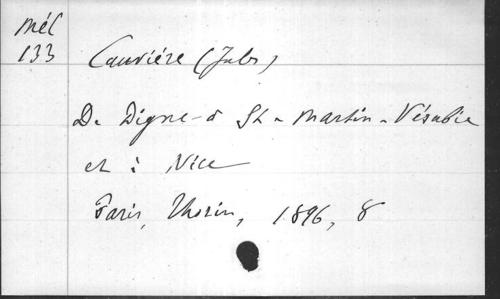 Mél
133
Cauvière (Jules)
De Digne à St-Martin-Vésubie
et à Nice
Paris, Thorin, 1896, 8